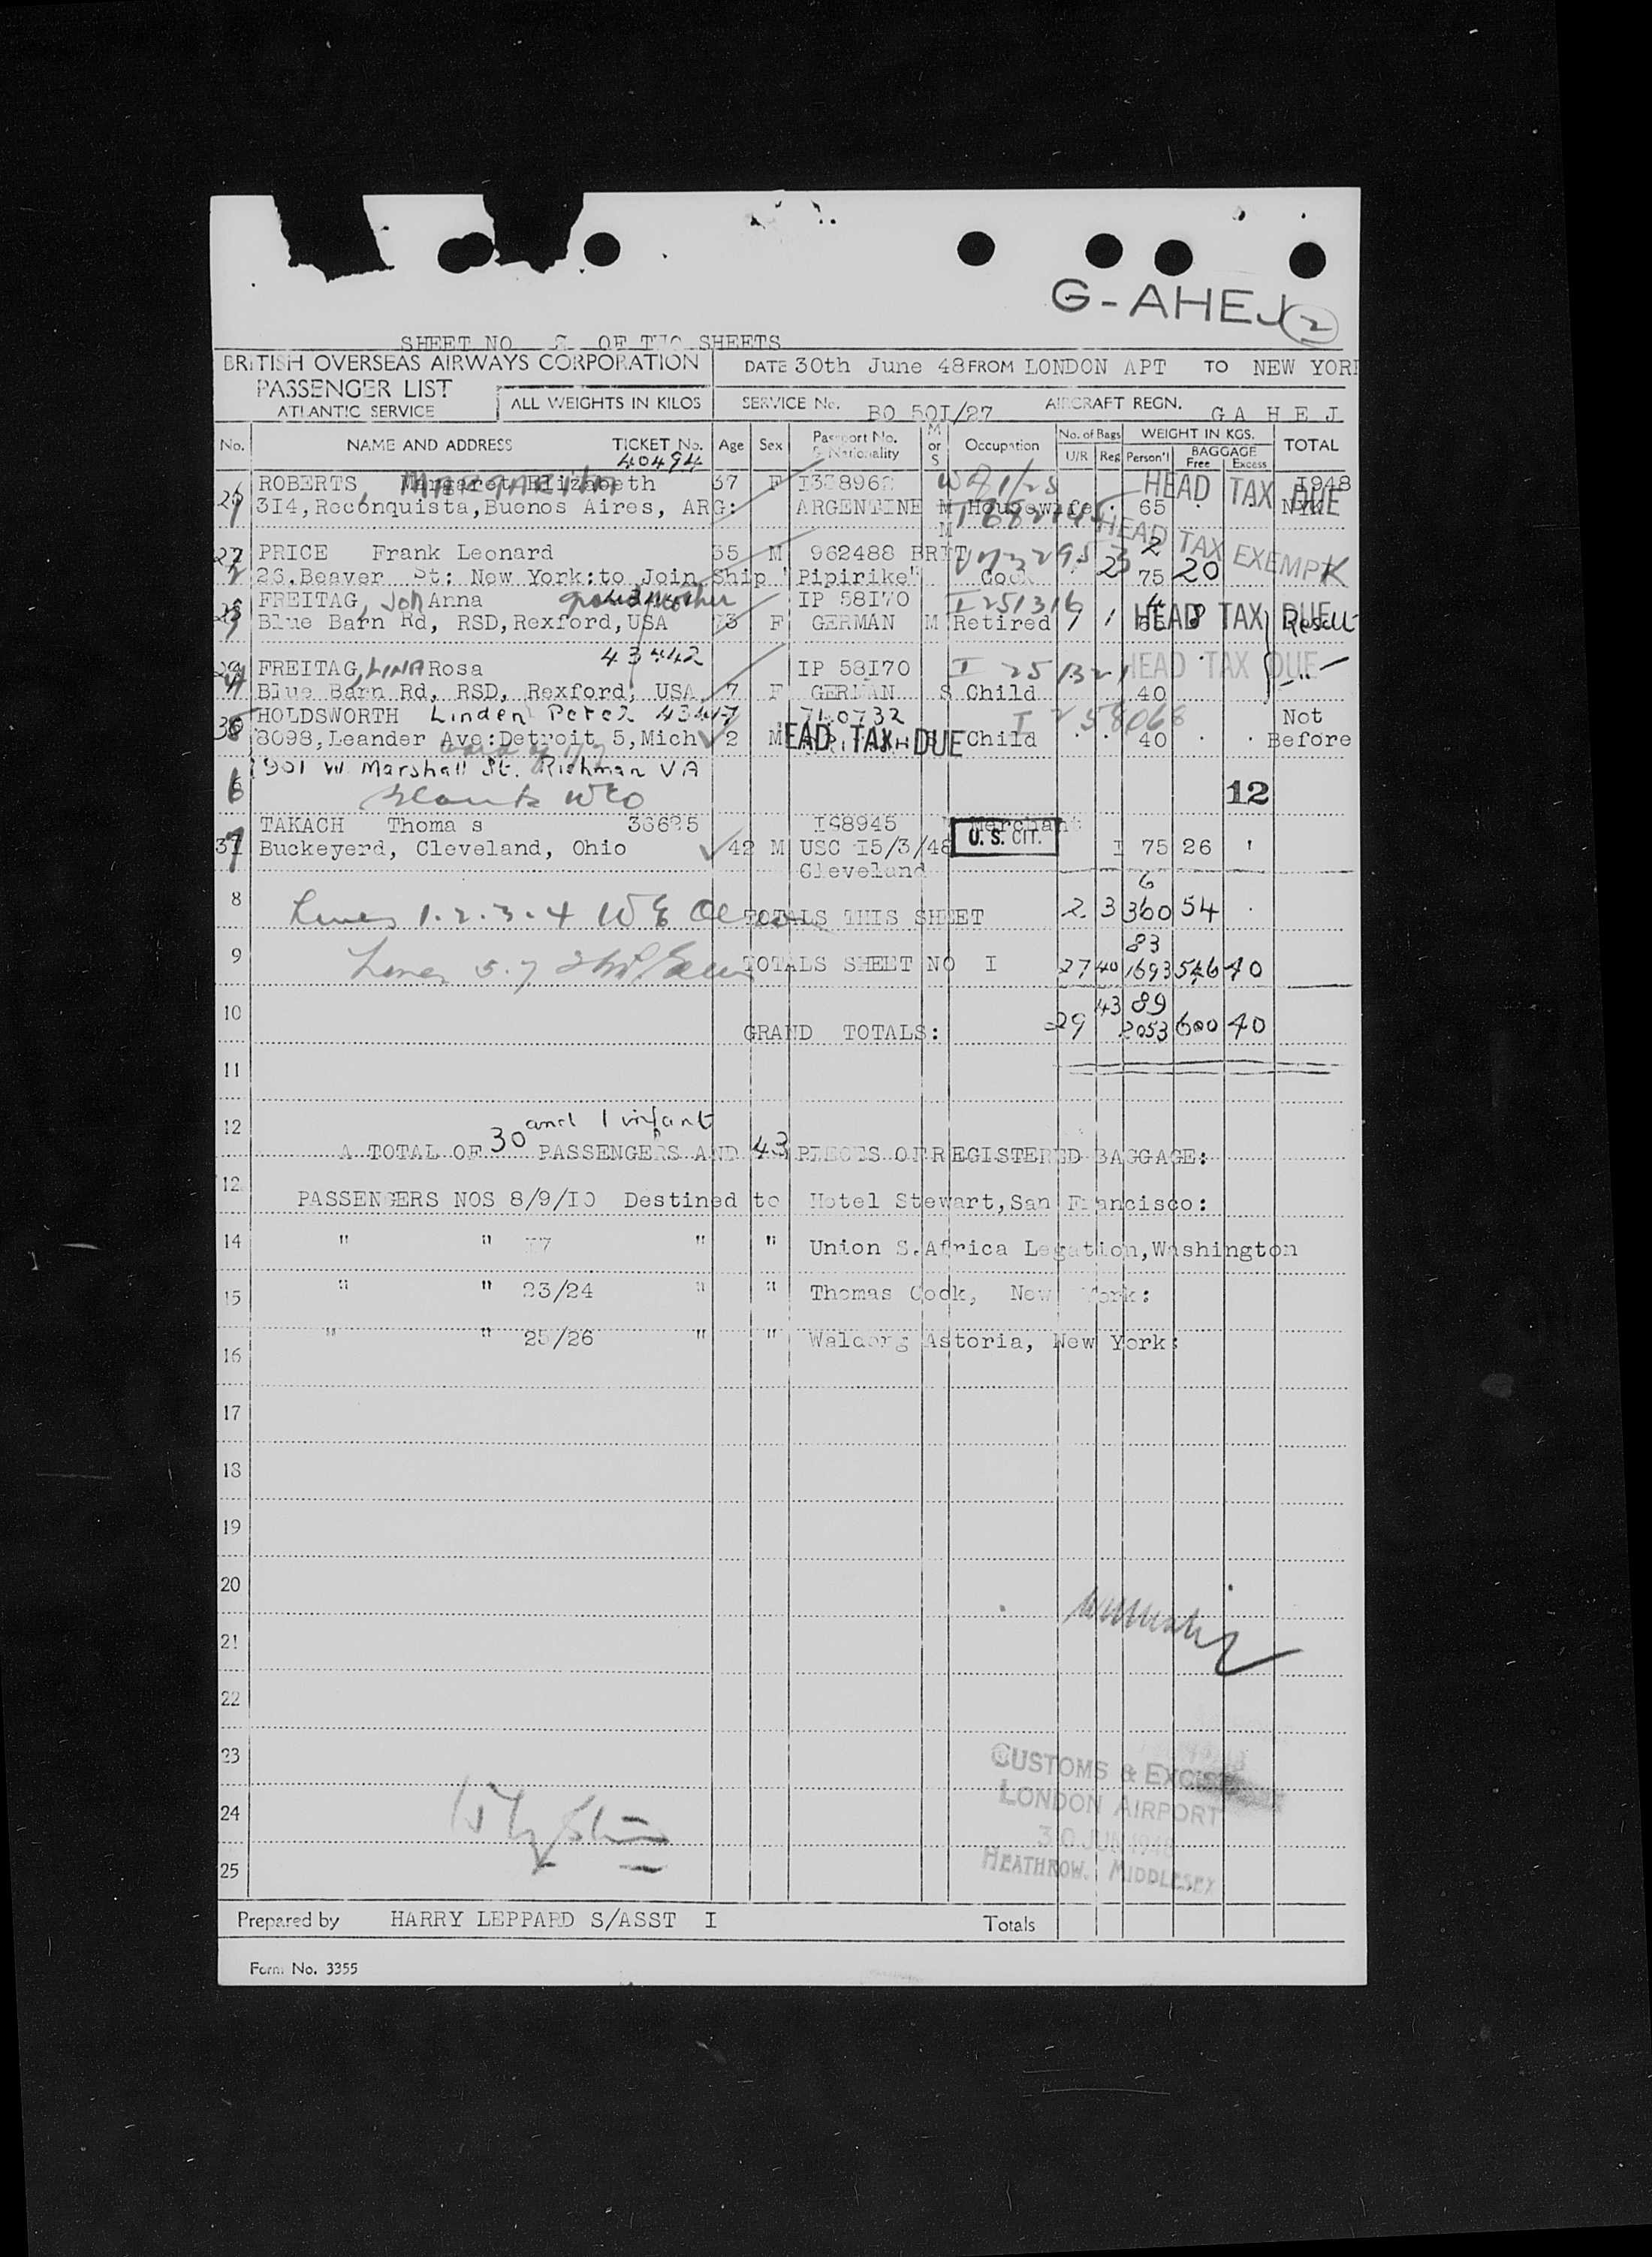 G-AHEJ 2
SHEET NO 2 OF TWO SHEETS
BRITISH OVERSEAS AIRWAYS CORPORATION DATE 30th June 48 FROM LONDON APT TO NEW YORK
PASSENGER LIST
ATLANTIC SERVICE ALL WEIGHTS IN KILOS SERVICE No. BO 50I/27 AIRCRAFT REGN. G A H E J
No. NAME AND ADDRESS TICKET No. Age Sex Passport No. & Nationality M or S Occupation No. of Bags U/R Reg WEIGHT IN KGS. Person'l BAGGAGE Free Excess TOTAL
40494
ROBERTS Margaret Elizabeth 37 F HEAD TAX DUE I948
3I4, Reconquista, Buenos Aires, ARG: ARGENTINE M Housewife 65 NYK
HEAD TAX EXEMPT
27 PRICE Frank Leonard 35 M 962488 BRIT
26.Beaver St: New York:to Join Ship "Pipirike" Cook 2 75 20
FREITAG, Anna grandmother IP 58I70 I 251316
Blue Barn Rd, RSD, Rexford, USA 73 F GERMAN M Retired 1 HEAD TAX DUE
43442
FREITAG, LINA Rosa IP 58I70 I 251321 HEAD TAX DUE
Blue Barn Rd, RSD, Rexford, USA 7 F GERMAN S Child 40
HOLDSWORTH Linden Peter 43447 740732 I 258068 Not
8098, Leander Ave:Detroit 5, Mich 2 M HEAD TAX DUE Child 40 Before
1901 W. Marshall St. Richman VA
6 12
TAKACH Thomas 36625 I98945 Merchant
Buckeyerd, Cleveland, Ohio 42 M USC I5/3/48 U. S. CIT. I 75 26
Cleveland
6
8 Lines 1.2.3.4 TOTALS THIS SHEET 2 3 360 54
83
9 Lines 5.7 TOTALS SHEET NO I 27 40 1693 546 40
43 89
10 GRAND TOTALS: 29 2053 600 40
11
and 1 infant
12 A TOTAL OF 30 PASSENGERS AND 43 PIECES OF REGISTERED BAGGAGE:
12 PASSENGERS NOS 8/9/I0 Destined to Hotel Stewart, San Francisco:
14 " " I7 " " Union S.Africa Legation, Washington
15 " " 23/24 " " Thomas Cook, New York:
16 " " 25/26 " " Waldorg Astoria, New York:
17
18
19
20
21
22
23
CUSTOMS & EXCISE
24 LONDON AIRPORT
30 JUN 1948
25 HEATHROW. MIDDLESEX
Prepared by HARRY LEPPARD S/ASST I Totals
Form No. 3355